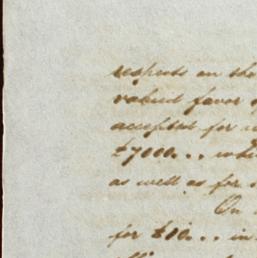 respects on the
valued favor
accepted for
£7000... whi
as well as for
On
for £10... in